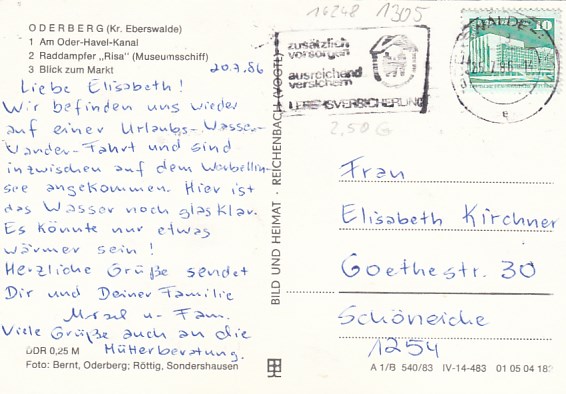 16248 1305
ODERBERG (Kr. Eberswalde)
1 Am Oder-Havel-Kanal
2 Raddampfer „Risa" (Museumsschiff)
3 Blick zum Markt
20.7.86
Liebe Elisabeth!
Wir befinden uns wieder
auf einer Urlaubs-Wasser-
Wander-Fahrt und sind
inzwischen auf dem Werbellin-
see angekommen. Hier ist
das Wasser noch glasklar.
Es könnte nur etwas
wärmer sein!
Herzliche Grüße sendet
Dir und Deiner Familie
u. Fam.
Viele Grüße auch an die
Mütterberatung.
DDR 0,25 M
Foto: Bernt, Oderberg; Röttig, Sondershausen
BILD UND HEIMAT · REICHENBACH (VOGTL)
zusätzlich
vorsorgen
ausreichend
versichern
LEBENSVERSICHERUNG
10
2,50 G
Frau
Elisabeth Kirchner
Goethestr. 30
Schöneiche
1254
A 1/B 540/83 IV-14-483 01 05 04 18